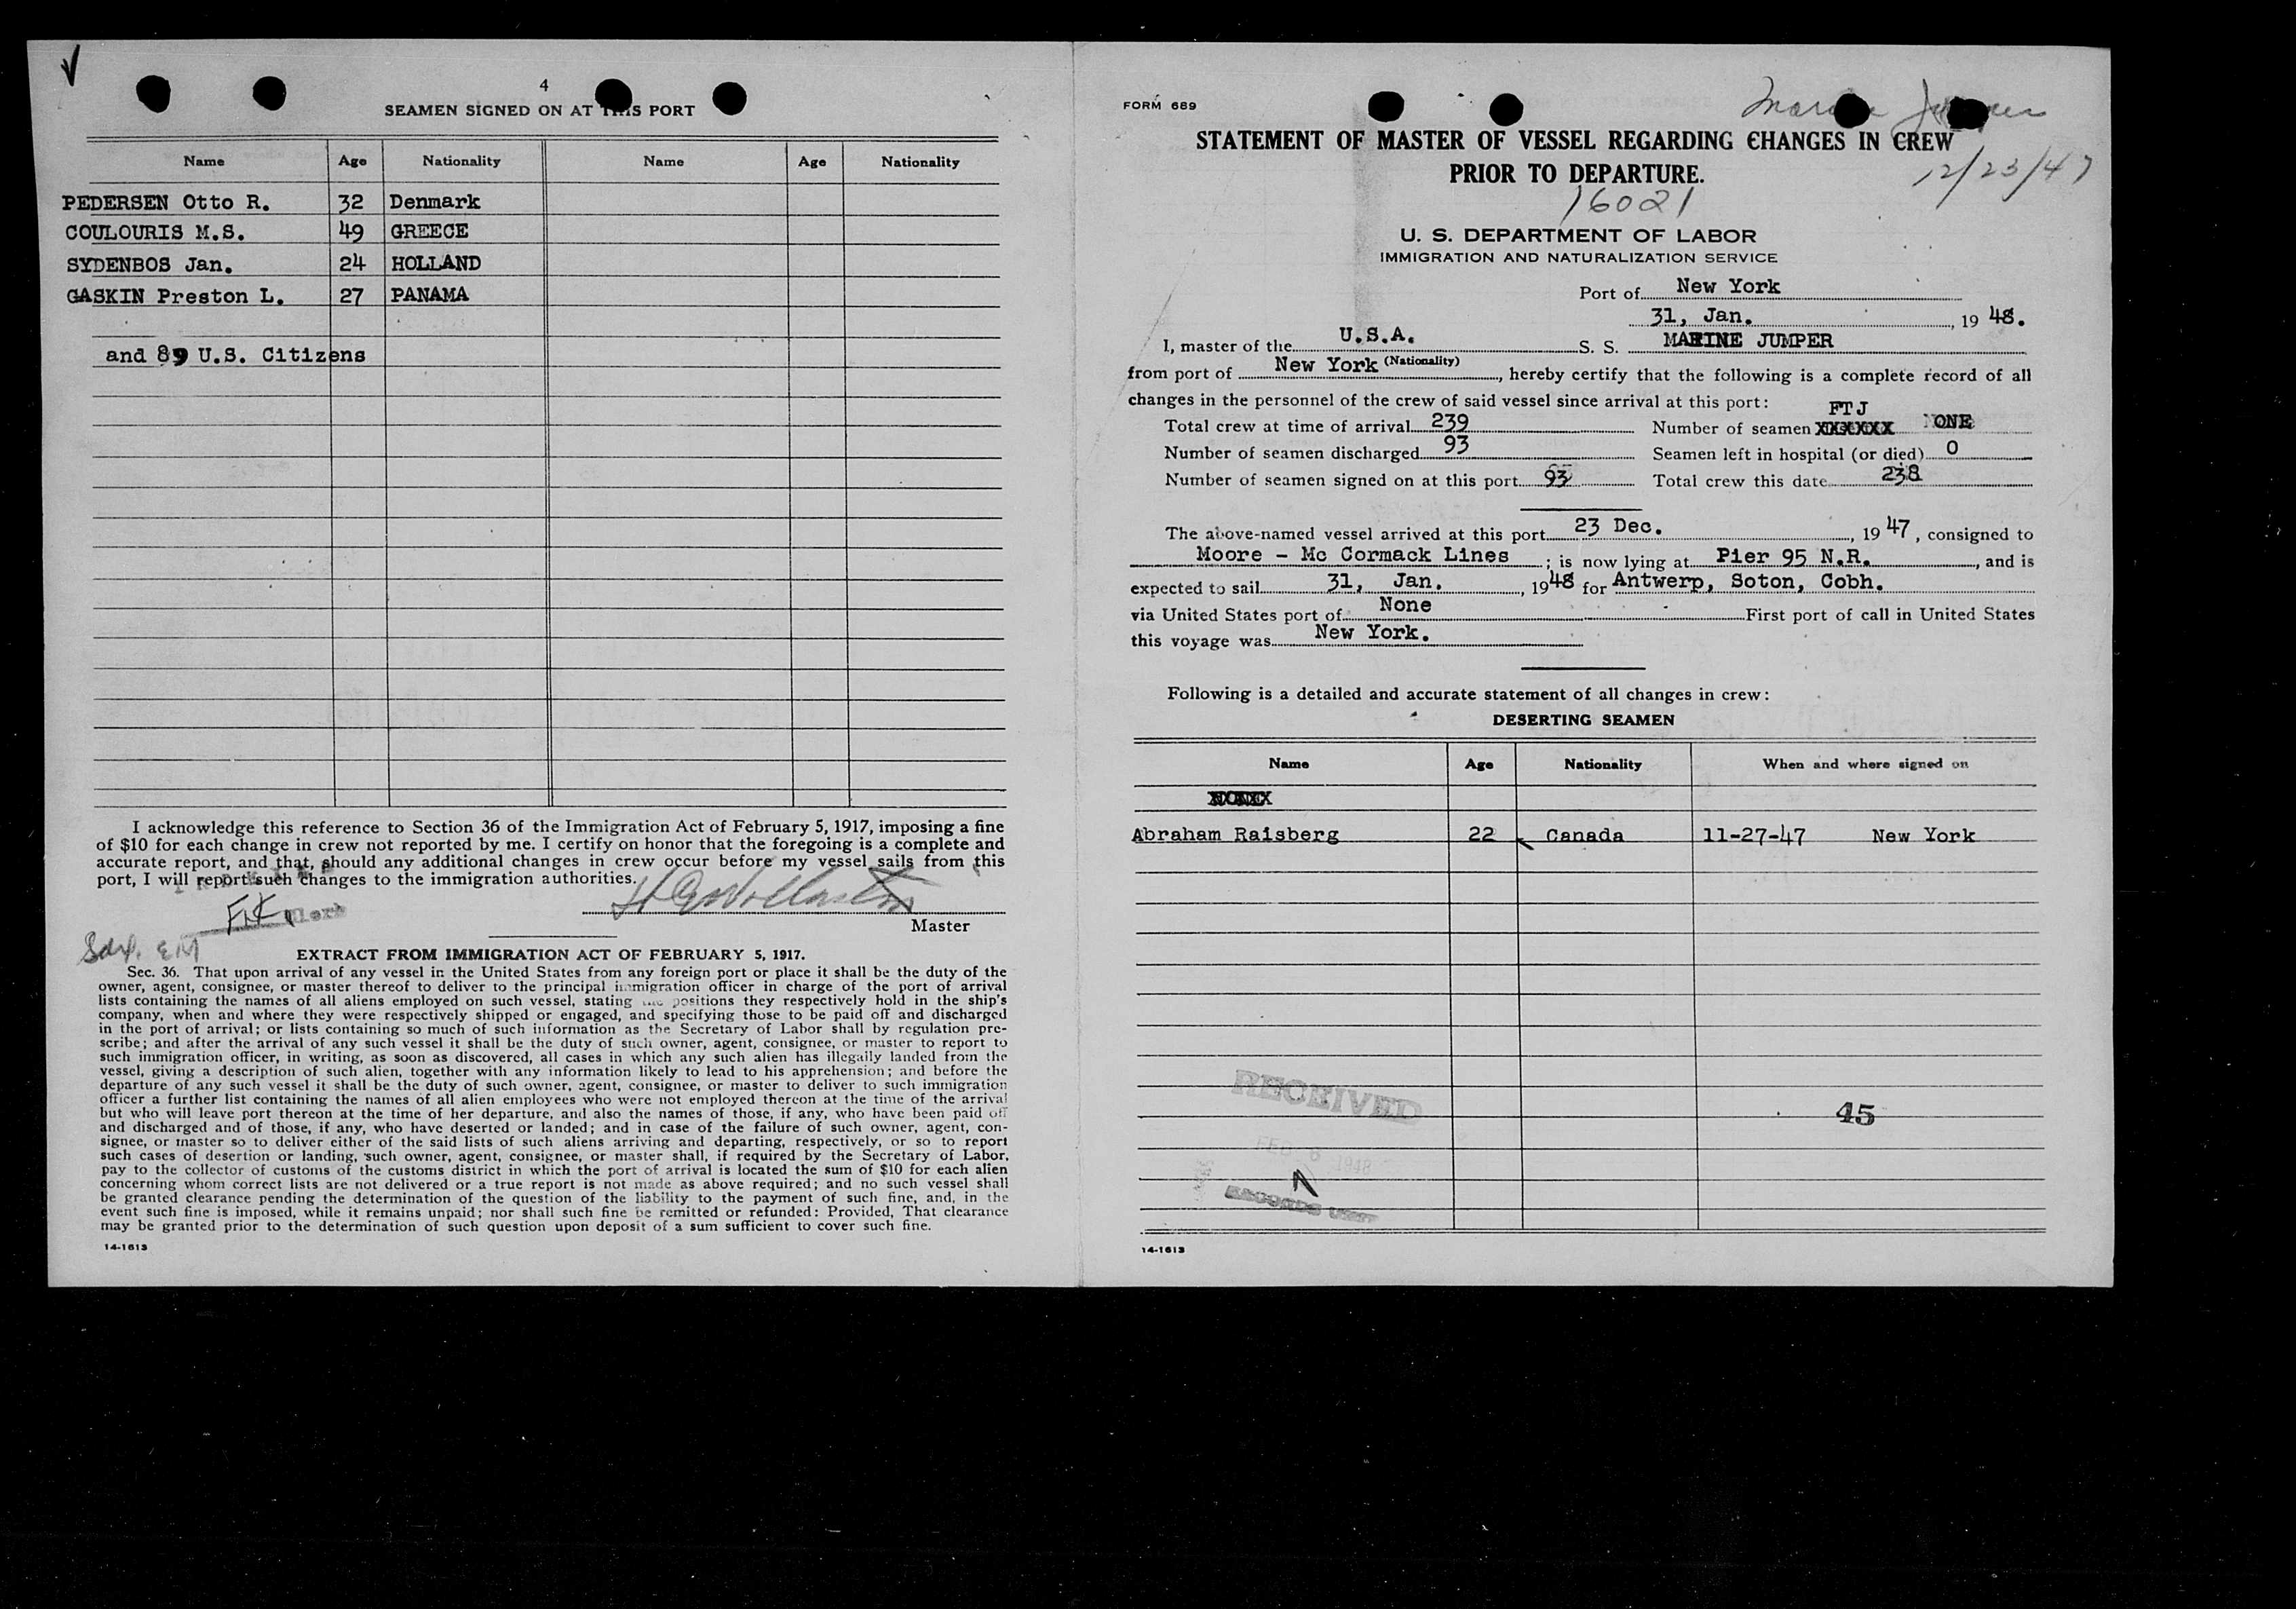 4
SEAMEN SIGNED ON AT THIS PORT
Name Age Nationality Name Age Nationality
PEDERSEN Otto R. 32 Denmark
COULOURIS M.S. 49 GREECE
SYDENBOS Jan. 24 HOLLAND
GASKIN Preston L. 27 PANAMA
and 89 U.S. Citizens
I acknowledge this reference to Section 36 of the Immigration Act of February 5, 1917, imposing a fine
of $10 for each change in crew not reported by me. I certify on honor that the foregoing is a complete and
accurate report, and that, should any additional changes in crew occur before my vessel sails from this
port, I will report such changes to the immigration authorities.
Clerk
Master
EXTRACT FROM IMMIGRATION ACT OF FEBRUARY 5, 1917.
Sec. 36. That upon arrival of any vessel in the United States from any foreign port or place it shall be the duty of the
owner, agent, consignee, or master thereof to deliver to the principal immigration officer in charge of the port of arrival
lists containing the names of all aliens employed on such vessel, stating the positions they respectively hold in the ship's
company, when and where they were respectively shipped or engaged, and specifying those to be paid off and discharged
in the port of arrival; or lists containing so much of such information as the Secretary of Labor shall by regulation pre-
scribe; and after the arrival of any such vessel it shall be the duty of such owner, agent, consignee, or master to report to
such immigration officer, in writing, as soon as discovered, all cases in which any such alien has illegally landed from the
vessel, giving a description of such alien, together with any information likely to lead to his apprehension; and before the
departure of any such vessel it shall be the duty of such owner, agent, consignee, or master to deliver to such immigration
officer a further list containing the names of all alien employees who were not employed thereon at the time of the arrival
but who will leave port thereon at the time of her departure, and also the names of those, if any, who have been paid off
and discharged and of those, if any, who have deserted or landed; and in case of the failure of such owner, agent, con-
signee, or master so to deliver either of the said lists of such aliens arriving and departing, respectively, or so to report
such cases of desertion or landing, such owner, agent, consignee, or master shall, if required by the Secretary of Labor,
pay to the collector of customs of the customs district in which the port of arrival is located the sum of $10 for each alien
concerning whom correct lists are not delivered or a true report is not made as above required; and no such vessel shall
be granted clearance pending the determination of the question of the liability to the payment of such fine, and, in the
event such fine is imposed, while it remains unpaid; nor shall such fine be remitted or refunded: Provided, That clearance
may be granted prior to the determination of such question upon deposit of a sum sufficient to cover such fine.
14-1613
FORM 689
Marine Jumper
STATEMENT OF MASTER OF VESSEL REGARDING CHANGES IN CREW
PRIOR TO DEPARTURE.
12/23/47
16021
U. S. DEPARTMENT OF LABOR
IMMIGRATION AND NATURALIZATION SERVICE
Port of New York
31, Jan., 19 48.
I, master of the U.S.A. S. S. MARINE JUMPER
(Nationality)
from port of New York, hereby certify that the following is a complete record of all
changes in the personnel of the crew of said vessel since arrival at this port:
Total crew at time of arrival 239 Number of seamen XXXXXX FTJ ONE
Number of seamen discharged 93 Seamen left in hospital (or died) 0
Number of seamen signed on at this port 93 Total crew this date 238
The above-named vessel arrived at this port 23 Dec., 19 47, consigned to
Moore - Mc Cormack Lines; is now lying at Pier 95 N.R., and is
expected to sail 31, Jan., 1948 for Antwerp, Soton, Cobh.
via United States port of None First port of call in United States
this voyage was New York.
Following is a detailed and accurate statement of all changes in crew:
DESERTING SEAMEN
Name Age Nationality When and where signed on
Abraham Raisberg 22 Canada 11-27-47 New York
45
RECEIVED
FEB 6 1948
RECORDS UNIT
14-1613